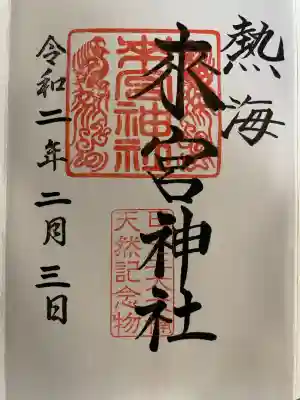 熱海
來宮神社
令和二年二月三日
天然記念物